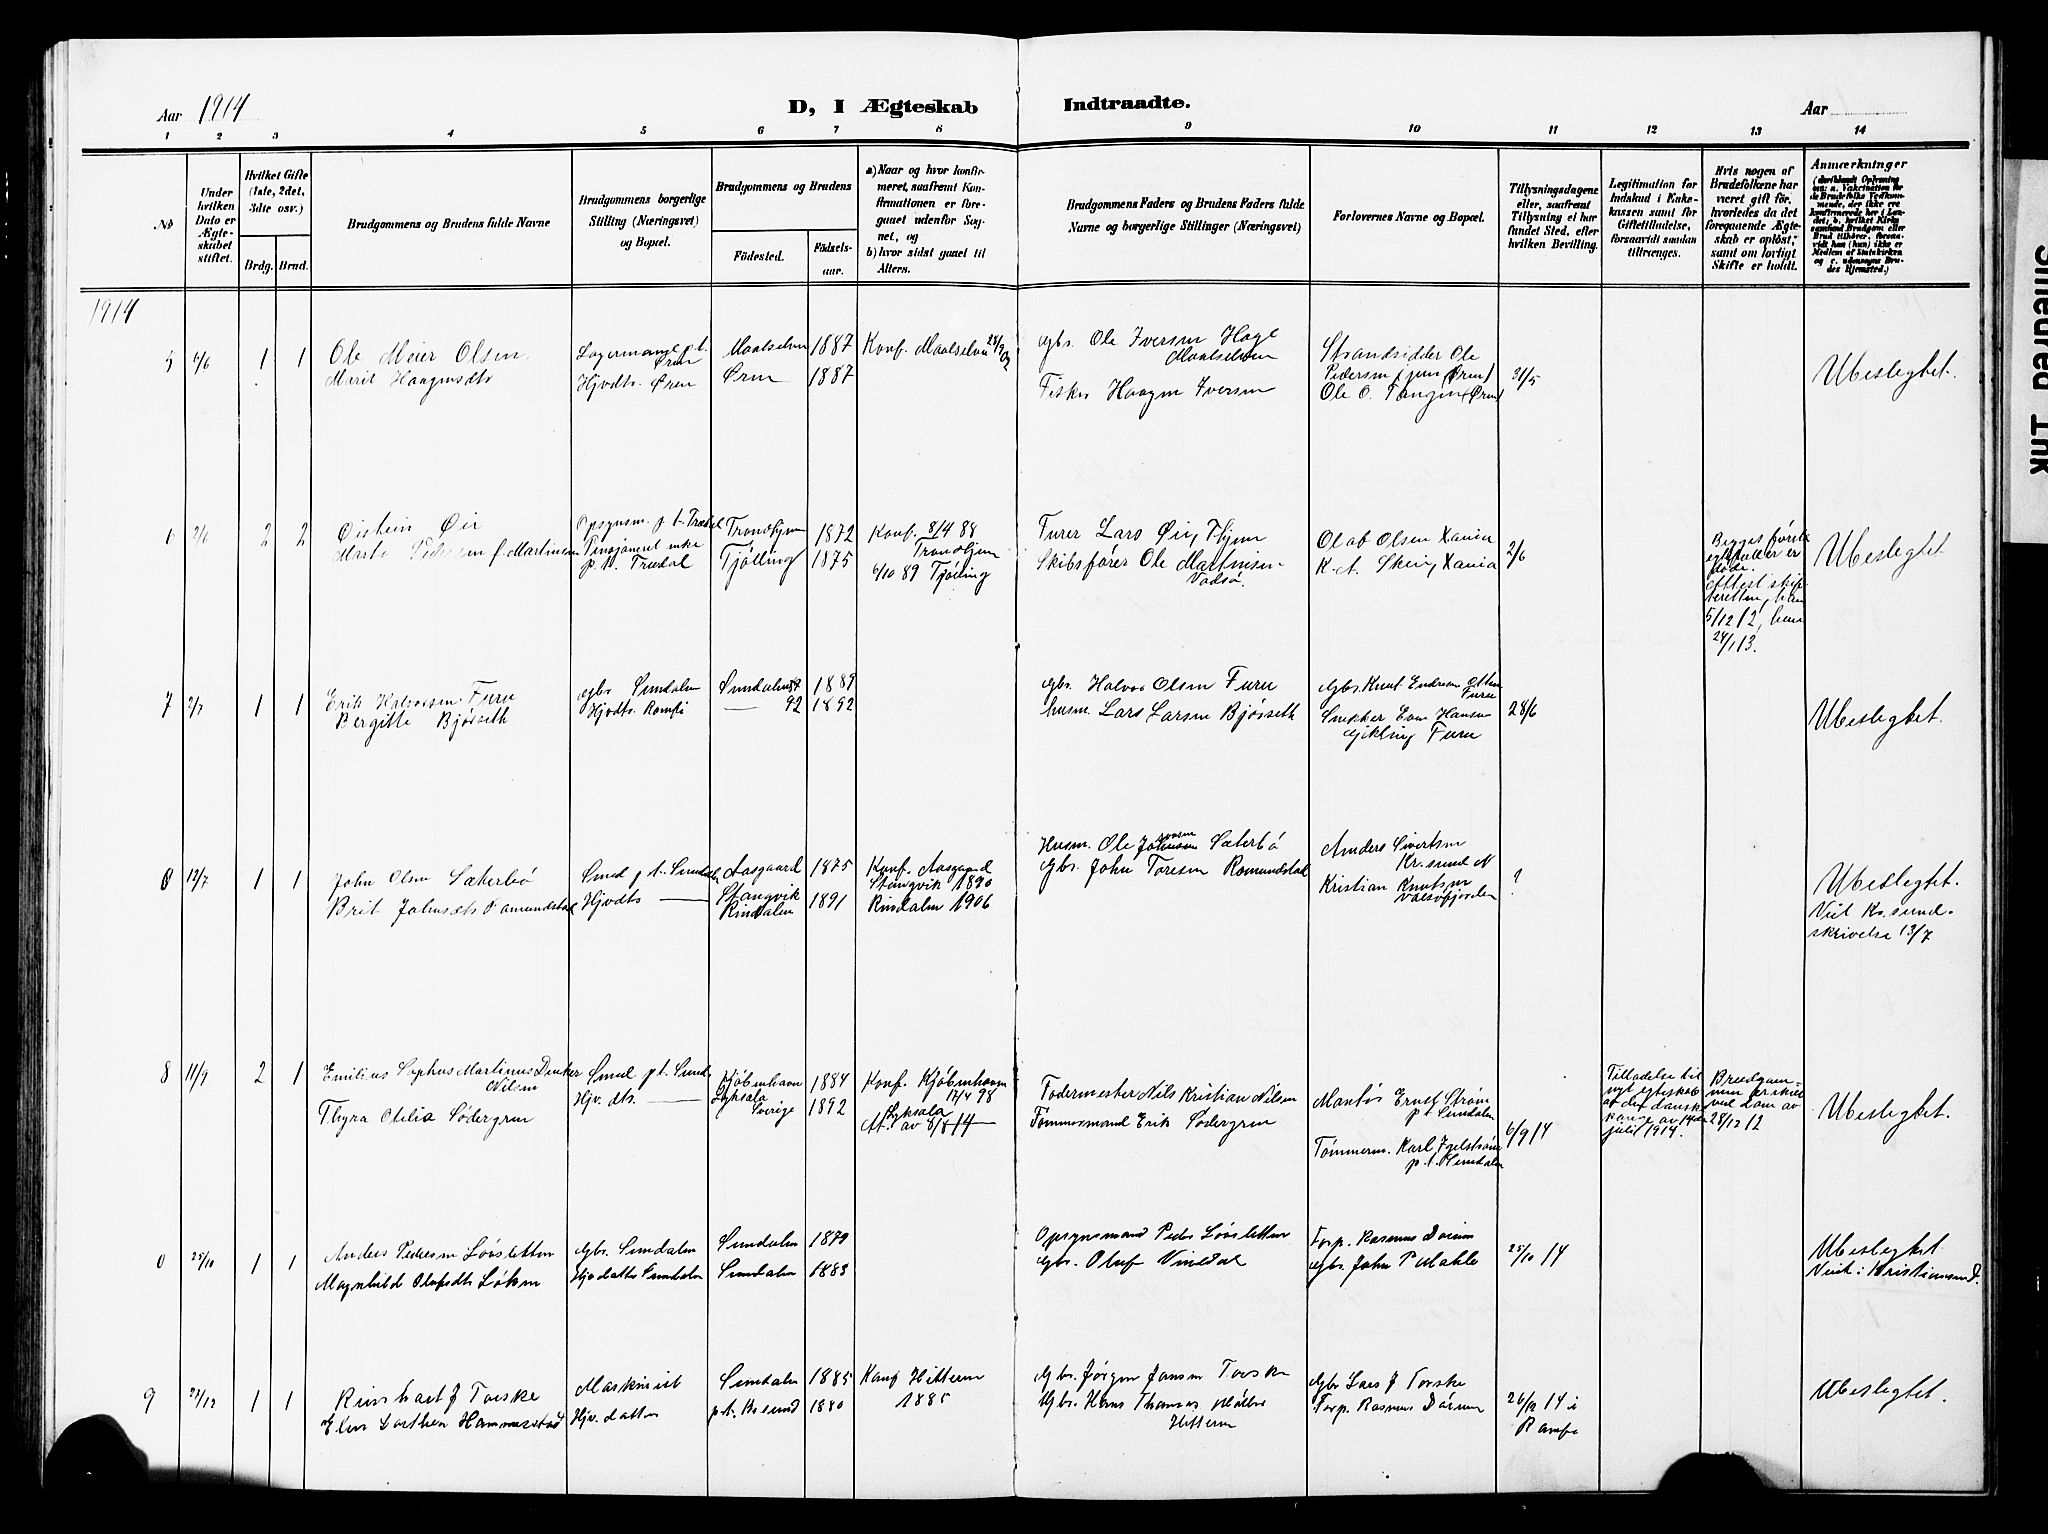 Aar 1914
D, I Ægteskab Indtraadte.
Aar
1 2 3 4 5 6 7 8 9 10 11 12 13 14
No
Under hvilken Dato er Ægteskabet stiftet.
Hvilket Gifte (1ste, 2det, 3dte osv.)
Brdg. Brud.
Brudgommens og Brudens fulde Navne
Brudgommens borgerlige Stilling (Næringsvei) og Bopæl.
Brudgommens og Brudens
Fødested. Fødselsaar.
a) Naar og hvor konfirmeret, saafremt Konfirmationen er foregaaet udenfor Sognet, og
b) hvor sidst gaaet til Alters.
Brudgommens Faders og Brudens Faders fulde Navne og borgerlige Stillinger (Næringsvei)
Forlovernes Navne og Bopæl.
Tillysningsdagene eller, saafremt Tillysning ei har fundet Sted, efter hvilken Bevilling.
Legitimation for Indskud i Enkekassen samt for Giftetilladelse, forsaavidt saadan tiltrænges.
Hvis nogen af Brudefolkene har været gift før, hvorledes da det foregaaende Ægteskab er opløst; samt om lovligt Skifte er holdt.
Anmærkninger
1914
5 6/6 1 1 Ole Meier Olsen Maalselven 1887 Konf. Maalselven
Gbr. Ole Iversen Hage
Maalselven
Strandsidder Ole
Marit Haagensdtr Hjvdtr. Øren Øren 1887
Fisker Haagen Iversen
Pedersen (jun Øren) 31/5
Ole O. Tangen (Øren)
Ubeslegtet.
6 2/6 2 2 Øistein Øir Opsynsm. p.t. Trædal Trondhjem 1872 Konf. 8/4 88
Trondhjem
Marta Pedersen f. Martinsen
p.t. Trædal Tjølling 1875 6/10 89 Tjølling
Furer Lars Øir, Thjem
Skibsfører Ole Martinsen
Vadsø.
Olab Olsen Xania
K. A. Skein, Xania 2/6
Begges første
egtefeller er
døde.
Attest skif
teretten, han
5/12 12, hun
24/1 13.
Ubeslegtet
7 2/7 1 1 Erik Halvorsen Furu Gbr Sundalen Sundalen 1889
Bergitte Bjørseth Hjvdtr. Romfo 92 1892
Gbr. Halvor Olsen Furu
husm. Lars Larsen Bjørseth
Gbr. Knut Endresen
Furu
Snekker Even Hansen 28/6
Furu
Ubeslegtet.
8 12/7 1 1 John Olsen Sæterbø Smed p.t. Sundalen Aasgaard 1875 Konf. Aasgaard
Stangvik Stangvik 1890
Brit Johnsdtr Romundstad Hjvdtr Rindalen 1891 Rindalen 1906
Husm. Ole Johnsen Sæterbø
Gbr. John Toresen Romundstad
Anders Sivertsen
Kr.sund N
Kristian Knutsen ?
Valsøfjorden
Ubeslegtet.
Viet Kr.sund.
skrivelse 13/7
8 11/9 2 1 Emilius Sophus Martinus Dinker
Nilsen
Smed p.t. Sund. Kjøbenhavn 1884 Konf. Kjøbenhavn
17/4 98
Thyra Otilia Södergren Hjv. dtr. Upsala
Sverige 1892 Upsala
At. av 6/8 14
Fodermester Nils Kristian Nilsen
Tømmermand Erik Södergren
Montør Ernst Strøm
p.t. Sundalen
Tømmerm. Karl Igelström
p.t. Sundalen
6/9 14
Tilladelse til
nyt egteskab
af det danske
juli 1914.
Brudgom-
men er skilt
ved dom av
28/12 12
Ubeslegtet.
0 25/10 1 1 Anders Pedersen Løvsletten Gbr. Sundalen Sundalen 1879
Magnhild Olufsdtr Løken Hjv datter Sundalen Sundalen 1883
Opsynsmand Peder Løvsletten
Gbr. Oluf Vinedal
Forp. Rasmus Dørum
Gbr. John P Mahle 25/10 14
Ubeslegtet.
Viet i Kristiansund.
9 27/12 1 1 Reinhart J Torske Maskinist Sundalen 1885 Konf Hitteren
Elen Dorthea Hammerstad Hjv. datter p.t. Bosund 1880 1885
Gbr. Jørgen Jansen Torske
Gbr. Hans Thomas
Hitteren
Gbr Lars J Torske
Forp. Rasmus Dørum 26/12 14 i
Romfo
Ubeslegtet.
Smedred Ink